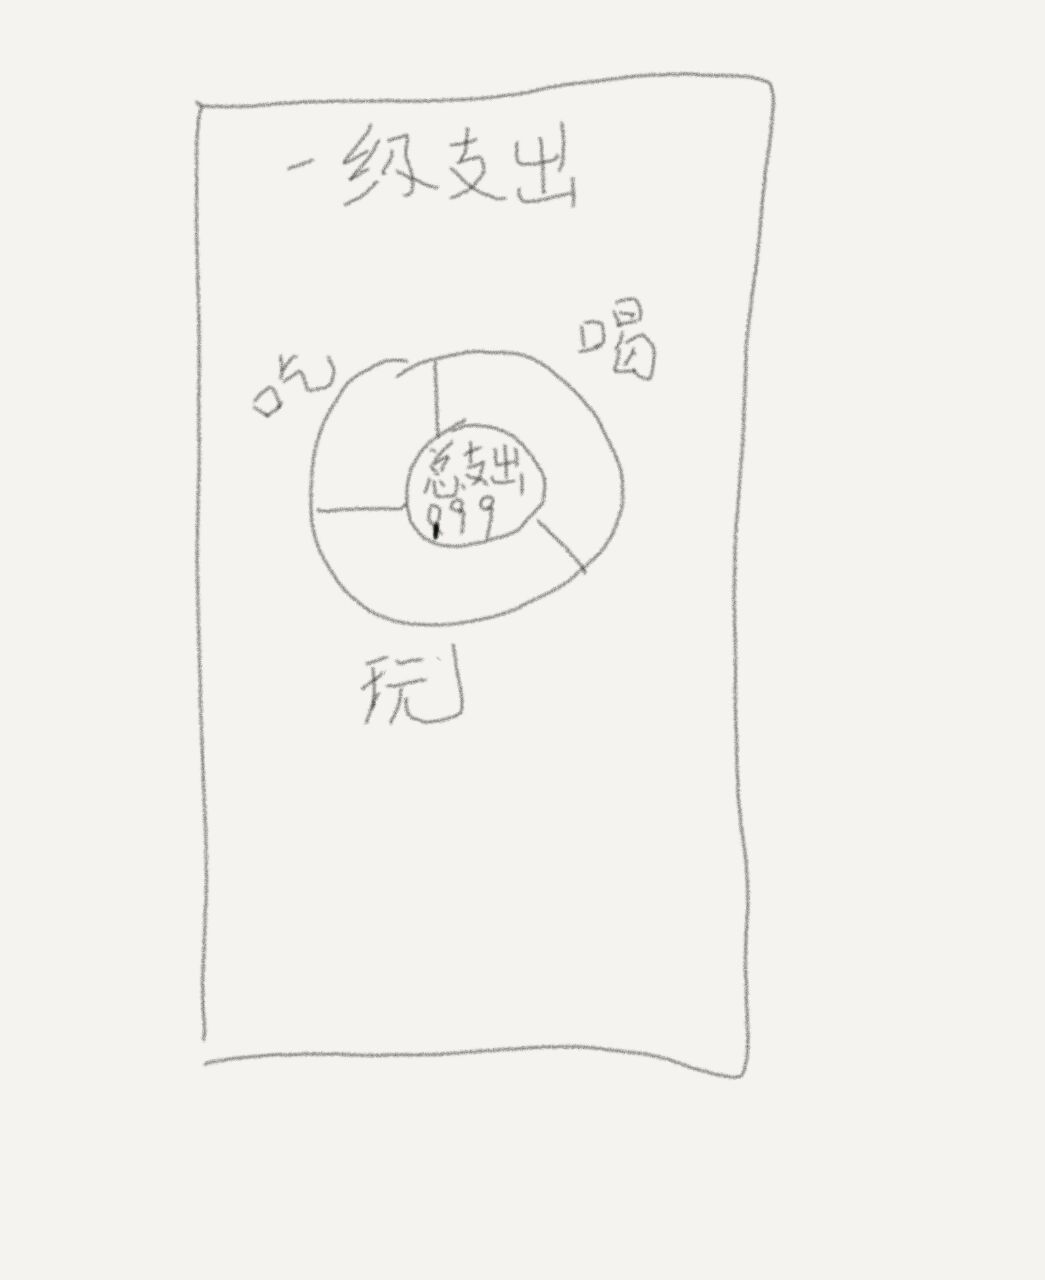 一级支出
喝
吃
总支出
999
玩